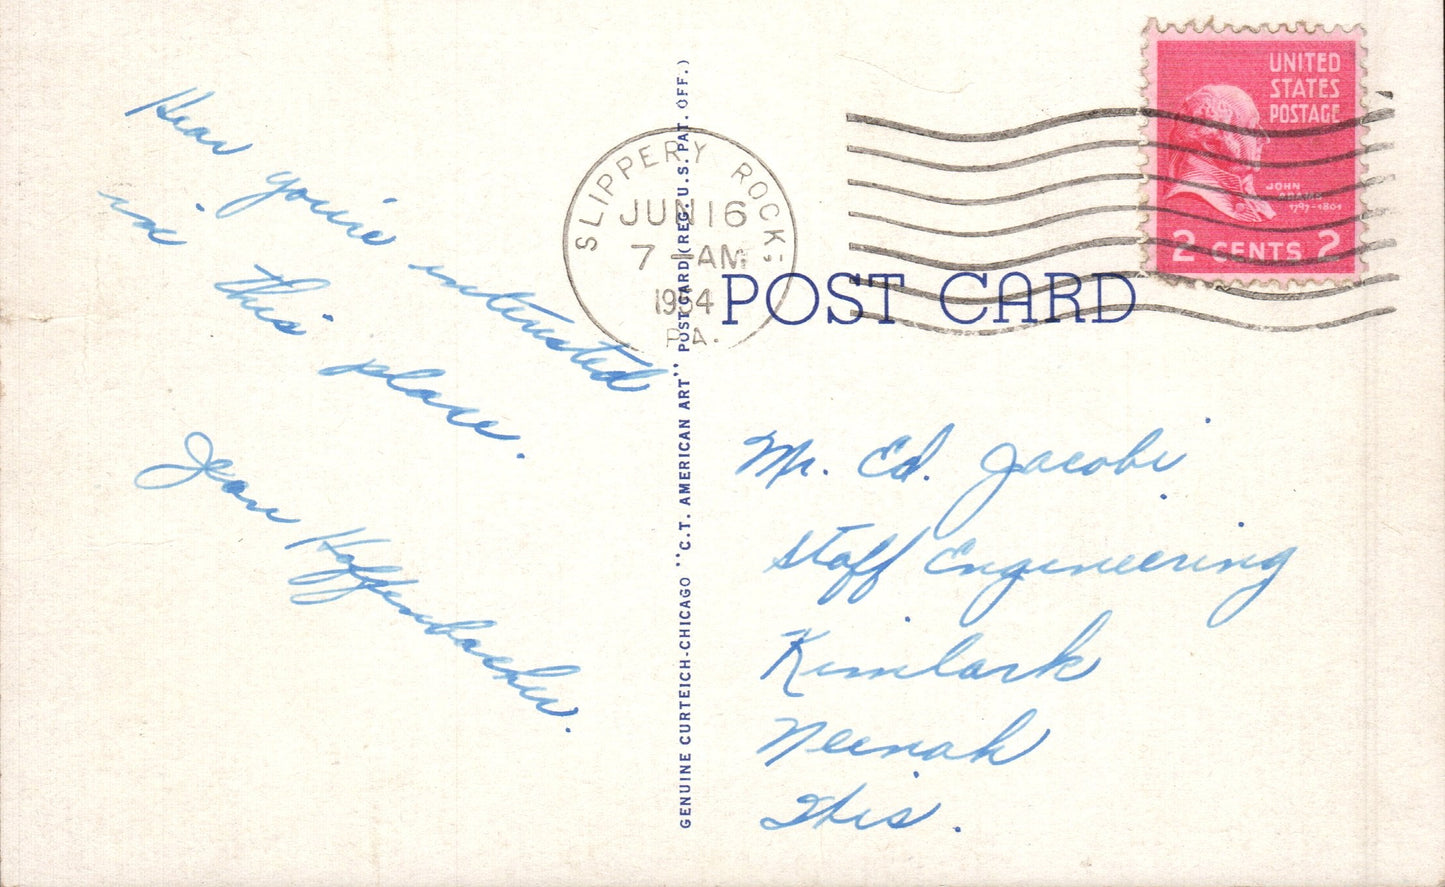 Hear you're interested
in this place.
Jean Hoffenbacher.
GENUINE CURTEICH-CHICAGO "C.T. AMERICAN ART" POST CARD (REG. U.S. PAT. OFF.)
SLIPPERY ROCK
JUN 16
7 - AM
1954
PA.
UNITED
STATES
POSTAGE
JOHN
ADAMS
1797-1801
2 CENTS 2
POST CARD
Mr. Ed. Jacobi
Staff Engineering
Kimlark
Neenah
Wis.